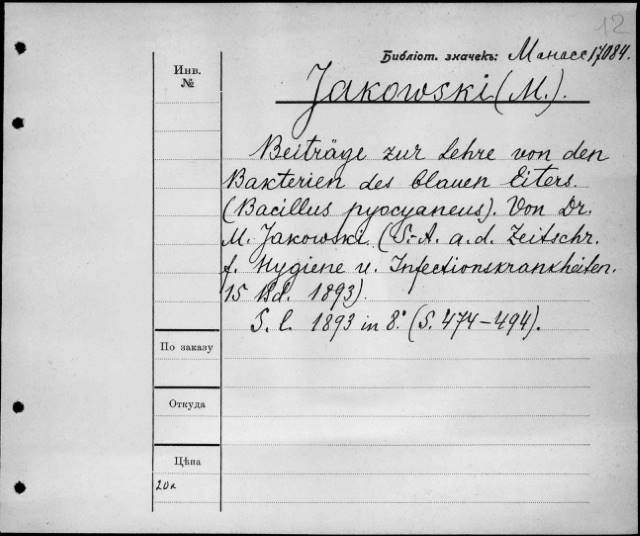 12
Библіот. значекъ: Манассе 17084.
Инв.
№
Jakowski (M.).
Beiträge zur Lehre von den
Bakterien des blauen Eiters.
(Bacillus pyocyaneus). Von Dr.
M. Jakowski. (S.-A. a. d. Zeitschr.
f. Hygiene u. Infectionskrankheiten.
15 Bd. 1893).
S. l. 1893 in 8.° (S. 474–494).
По заказу
Откуда
Цѣна
20 к